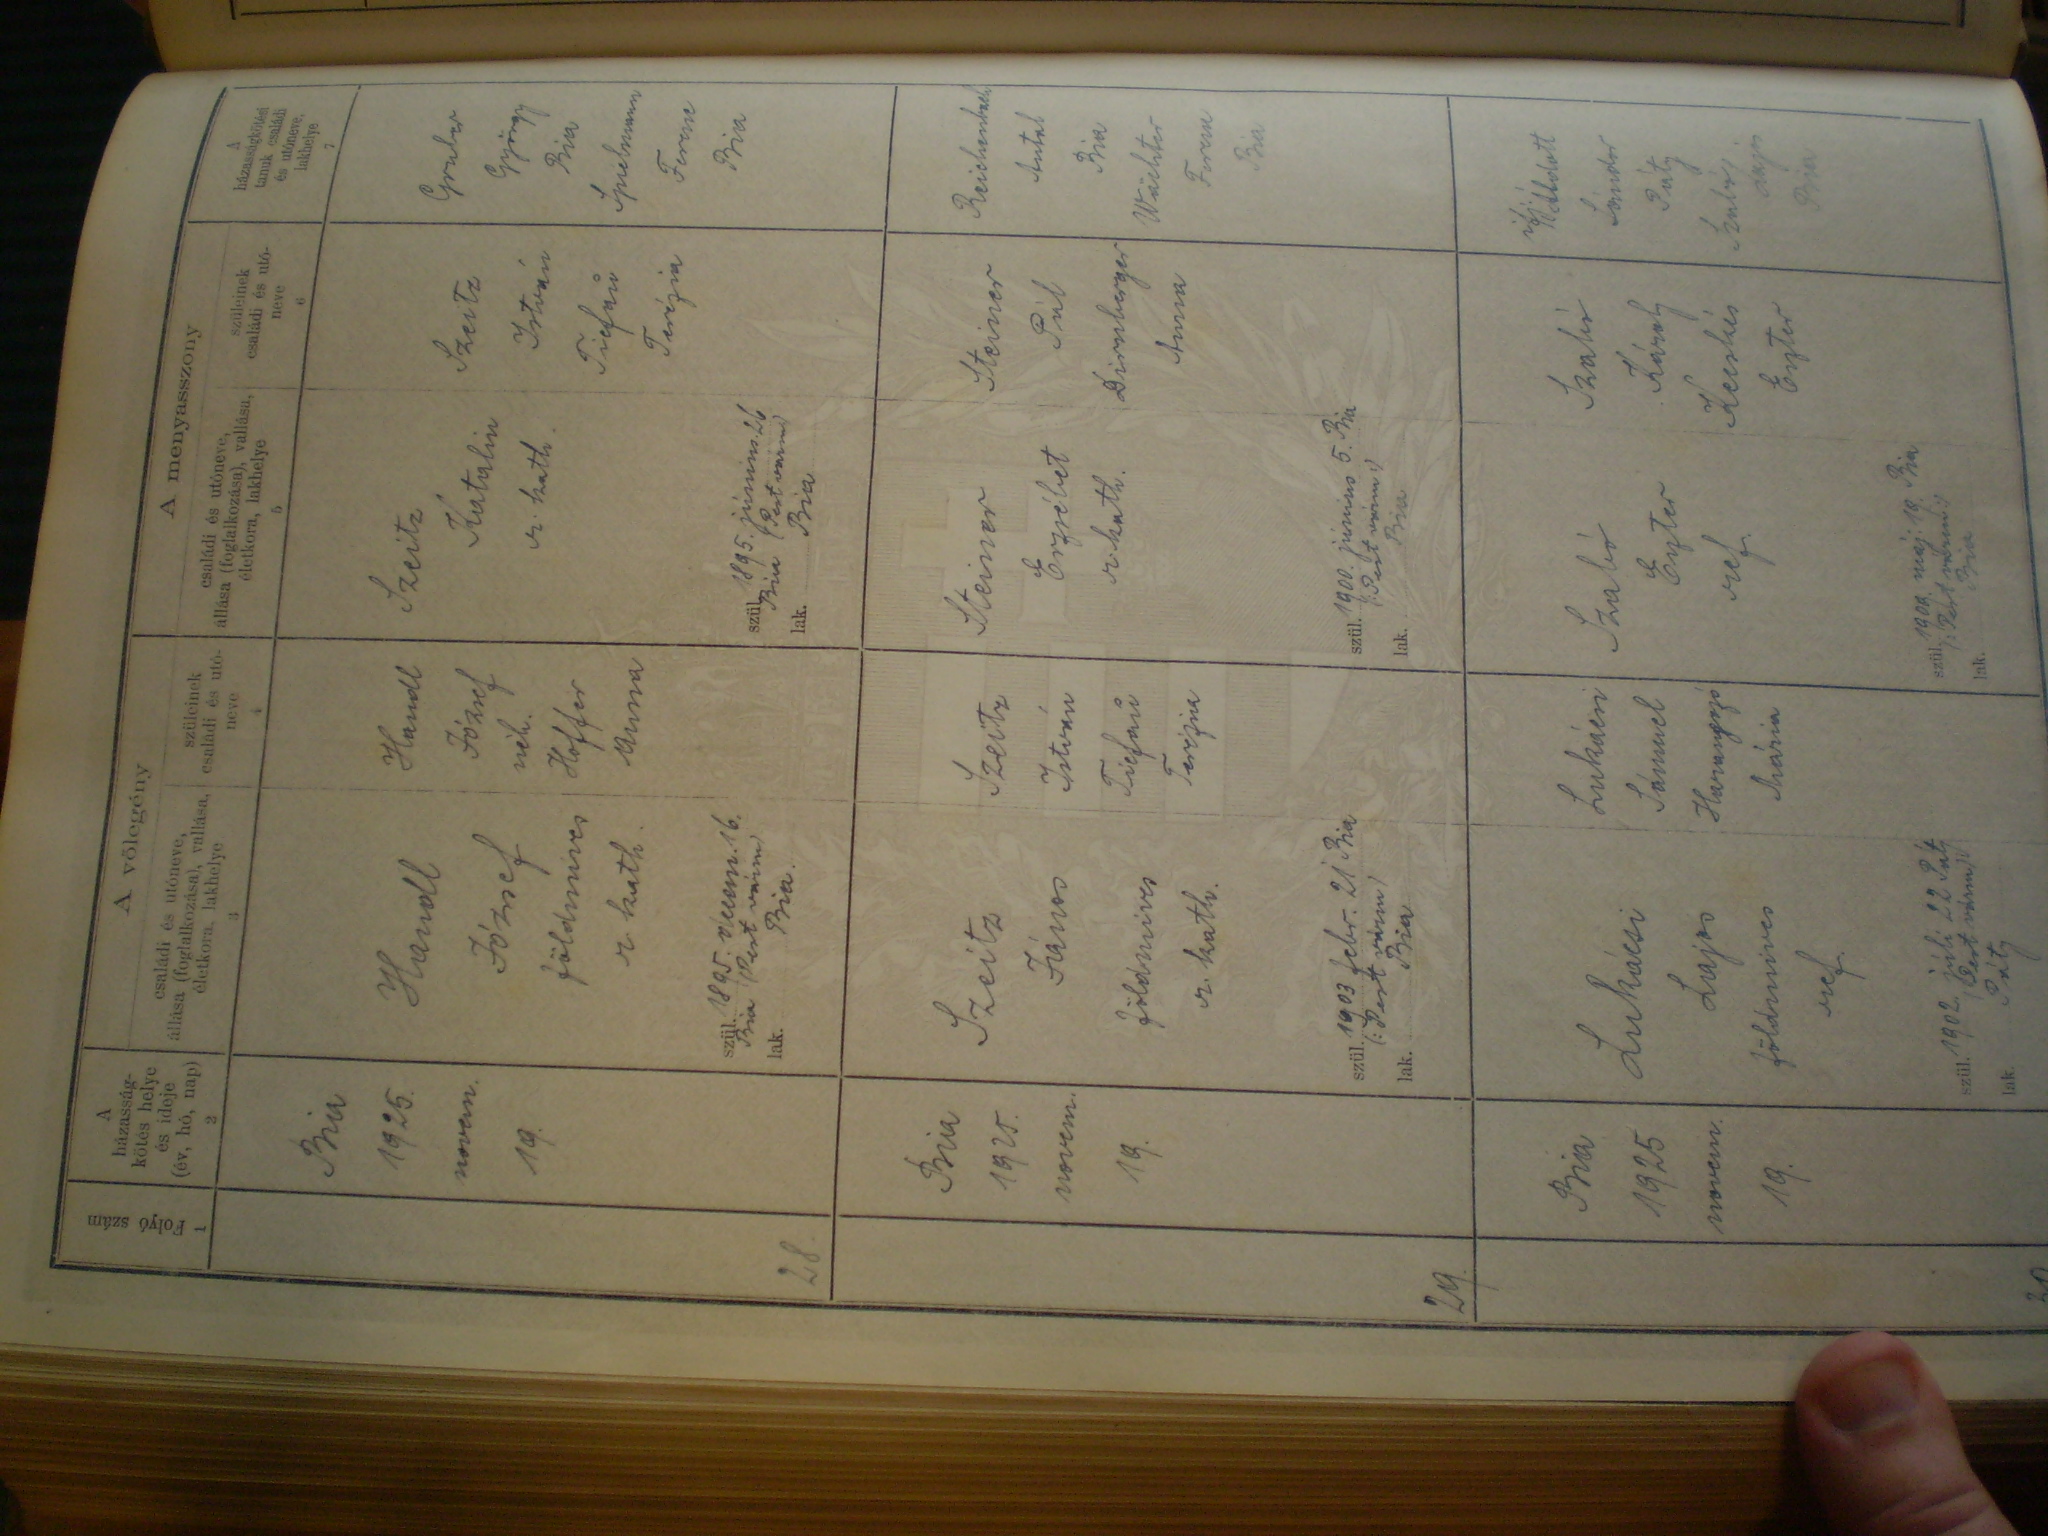 1
Folyó szám
2
A
házasság-
kötés helye
és ideje
(év, hó, nap)
A vőlegény
3
családi és utóneve,
állása (foglalkozása), vallása,
életkora, lakhelye
4
szüleinek
családi és utó-
neve
A menyasszony
5
családi és utóneve,
állása (foglalkozása), vallása,
életkora, lakhelye
6
szüleinek
családi és utó-
neve
7
A
házasságkötési
tanuk családi
és utóneve,
lakhelye
28.
Bia
1925.
novem.
19.
Handl
József
földmives
r. kath.
szül. 1895. decem. 16.
Bia (Pest várm)
lak. Bia.
Handl
József
néh.
Hoffer
Anna
Szeitz
Katalin
r. kath.
szül. 1895. június 26
Bia (Pest várm)
lak. Bia
Szeitz
István
Tiefaū
Terézia
Gruber
György
Bia
Spielmann
Ferenc
Bia
29.
Bia
1925.
novem.
19.
Szeitz
János
földmives
r. kath.
szül. 1903 febr. 21 Bia
(: Pest várm)
lak. Bia
Szeitz
István
Tiefaū
Terézia
Steiner
Erzsébet
r. kath.
szül. 1900. június 5. Bia
(: Pest várm :)
lak. Bia
Steiner
Pál
Dirnberger
Anna
Reichenbach
Antal
Bia
Wächter
Ferenc
Bia
30
Bia
1925
novem.
19.
Lukácsi
Lajos
földmives
ref.
szül. 1902. júli 22 Páty
(Pest várm)
lak. Páty
Lukácsi
Sámuel
Harangozó
Mária
Szabó
Eszter
ref.
szül. máj. 18. Bia
(: Pest várm :)
lak. Bia
Szabó
Károly
Kecskés
Eszter
ifj
Sándor
Páty
Lajos
Bia